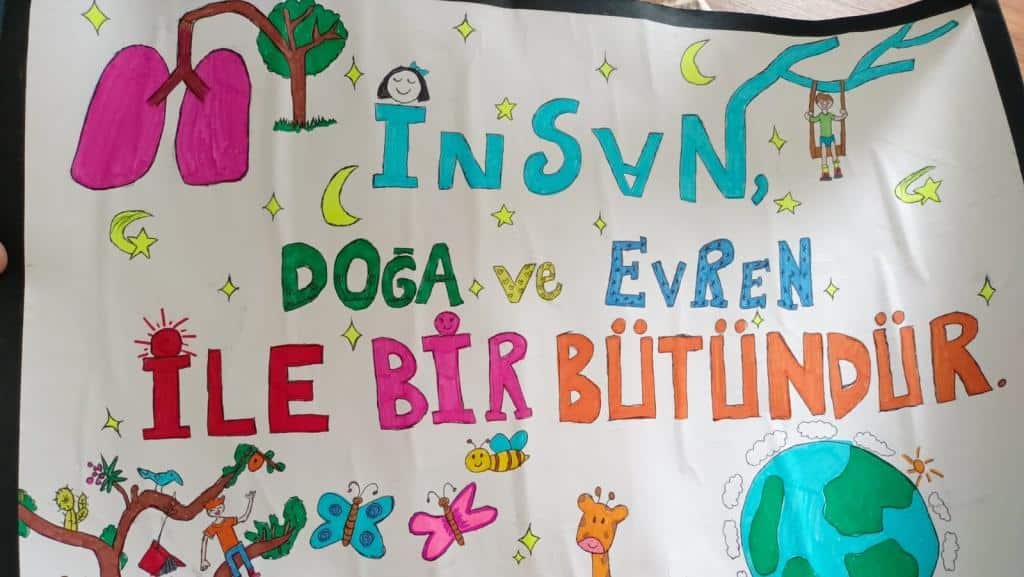 İNSAN,
DOĞA ve EVREN
İLE BİR BÜTÜNDÜR.